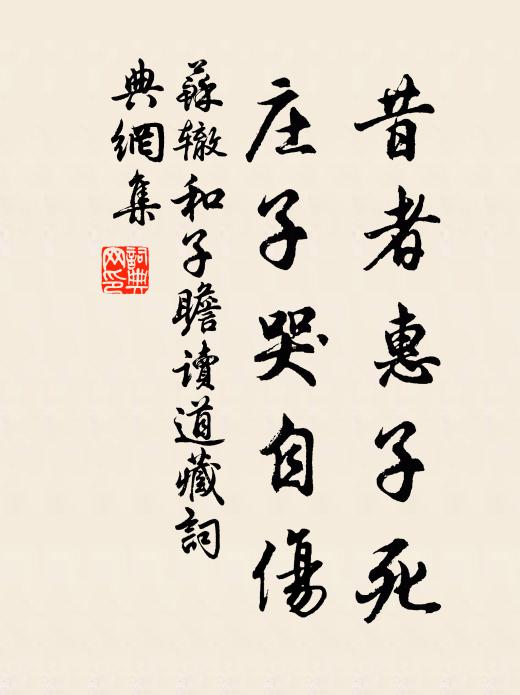 昔者惠子死
庄子哭自傷
蘇辙和子瞻讀道藏詞
典網集
詞典
网印